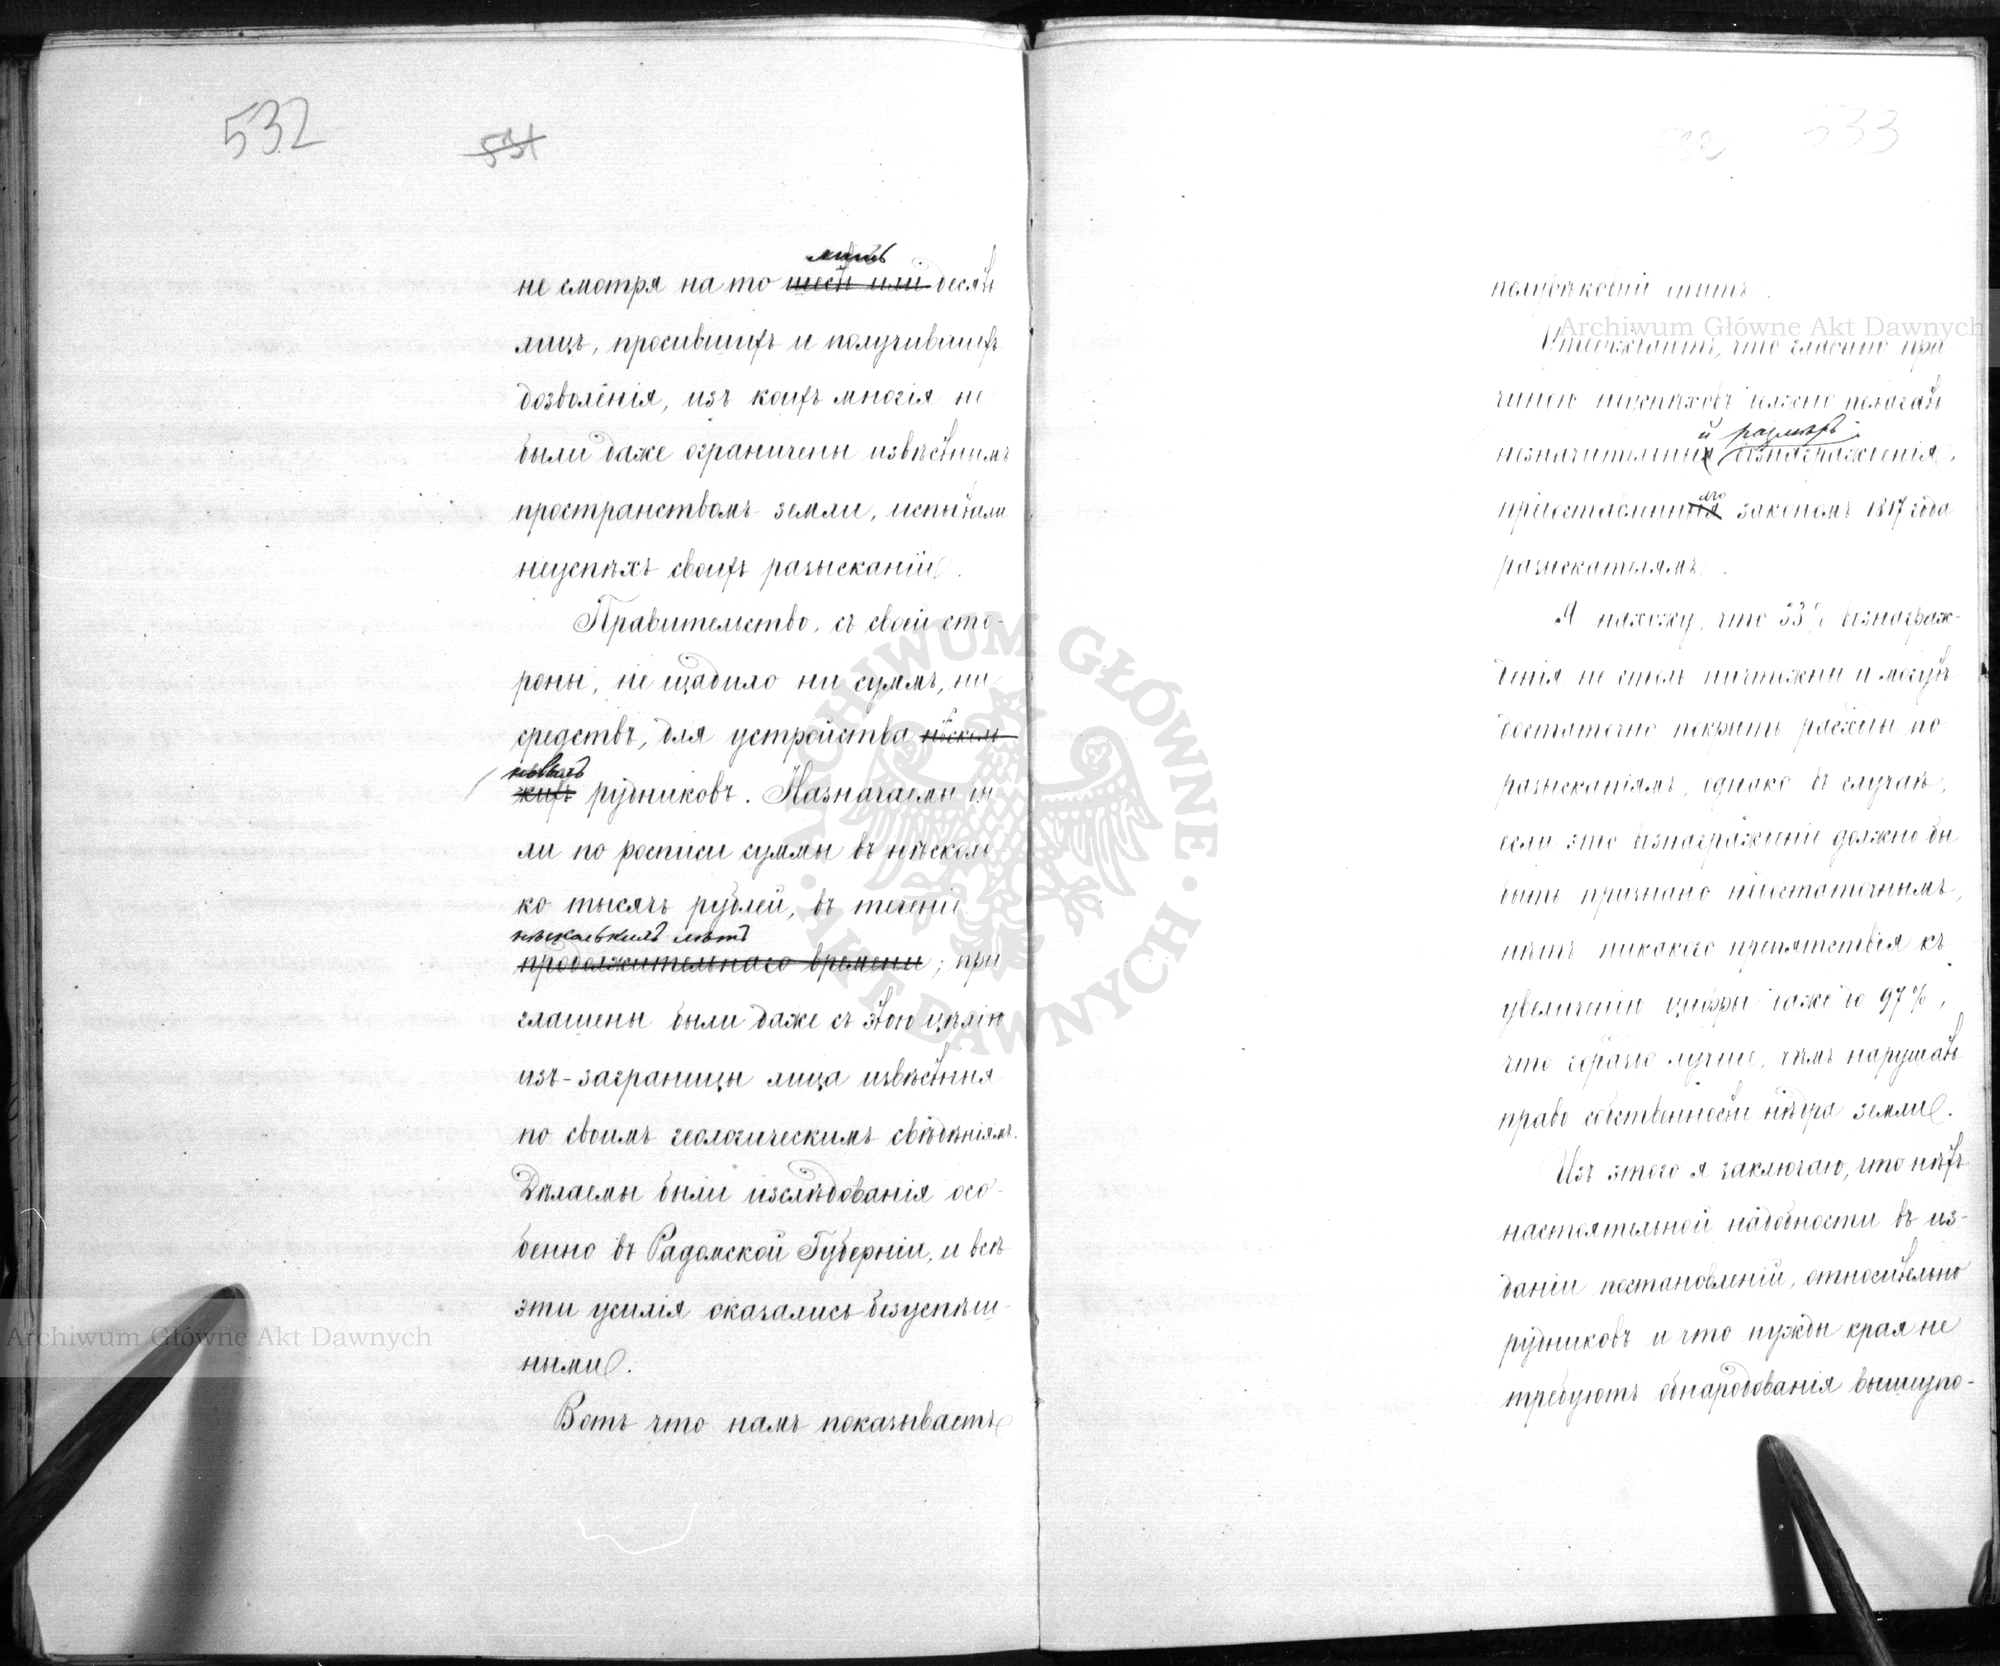 532
531
лишь
не смотря на то шесть или десять
лицъ, просившихъ и получившихъ
дозволенія, изъ коихъ многія не
были даже ограничены извѣстнымъ
пространствомъ земли, испытали
неуспѣхъ своихъ разысканій.
Правительство, съ своей сто-
роны, не щадило ни суммъ, ни
средствъ, для устройства нѣсколь-
новыхъ
кихъ рудниковъ. Назначаемы бы
ли по росписи суммы въ нѣсколь
ко тысячъ рублей, въ теченіе
нѣсколькихъ лѣтъ
продолжительнаго времени; при
глашены были даже съ этою цѣлію
изъ-заграницы лица извѣстныя
по своимъ геологическимъ свѣдѣніямъ.
Дѣлаемы были изслѣдованія осо-
бенно въ Радомской Губерніи, и всѣ
эти усилія оказались безуспѣш-
ными.
Вотъ что намъ показываетъ
532
533
полувѣковый опытъ.
Утверждаютъ, что главною при-
чиною неуспѣховъ должно полагать
й размѣръ
незначительныя вознагражденія,
предоставленныя закономъ 1817 года
разыскателямъ.
Я нахожу, что 33% вознаграж-
денія не столь ничтожны и могутъ
достаточно покрыть расходы по
разысканіямъ, однако въ случаѣ,
если это вознагражденіе должно бы
быть признано недостаточнымъ,
нѣтъ никакого препятствія къ
увеличенію цифры даже до 97%,
что гораздо лучше, чѣмъ нарушать
право собственности нѣдра земли.
Изъ этого я заключаю, что нѣтъ
настоятельной надобности въ из-
даніи постановленій, относительно
рудниковъ и что нужды края не
требуютъ обнародованія вышеупо-
Archiwum Główne Akt Dawnych
Archiwum Główne Akt Dawnych
ARCHIWUM GŁÓWNE AKT DAWNYCH